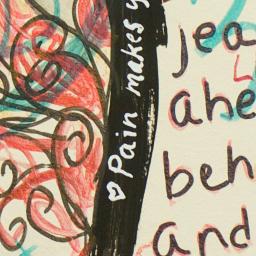 ♡ Pain makes y
jea
ahe
beh
and